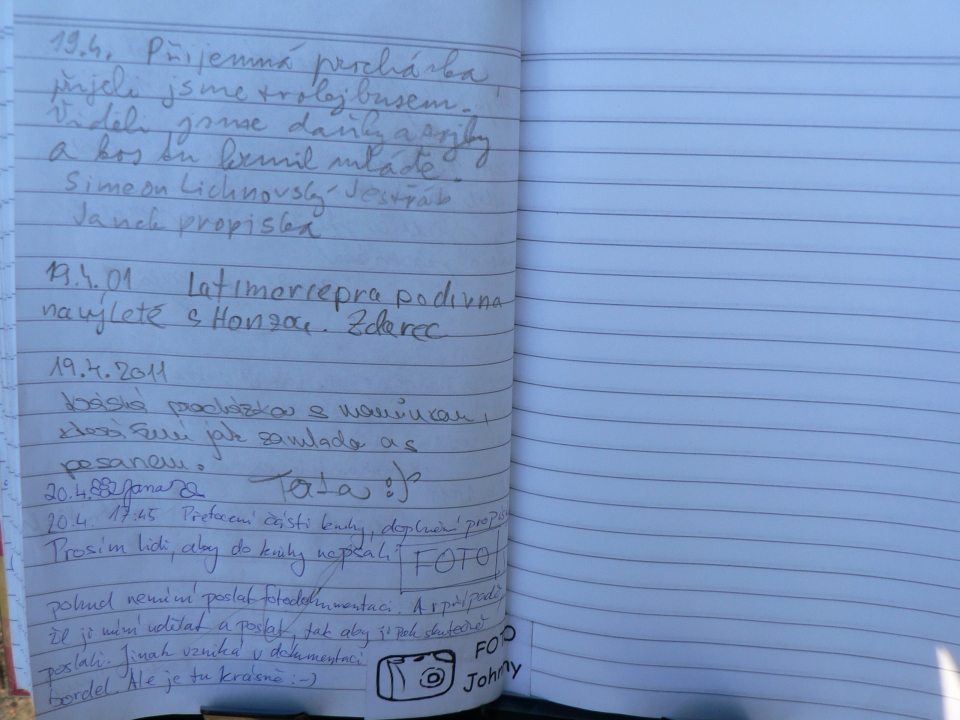 19.4. Příjemná procházka,
přijeli jsme trolejbusem.
Viděli jsme daňky a sojky
a kos tu krmil mládě.
Simeon Lichnovský Jestřáb
Janek propiska
19.4.01 Latimorcepra podivna
na výletě s Honzou. Zdarec
19.4.2011
procházkou s maminkou,
jak zamlada as
pesanem.
Tata :)
20.4. Jana
20.4. 17:45 Přefocení části knihy, doplnění propis
Prosím lidi, aby do knihy nepsali FOTO
pokud neumí poslat fotodokumentaci. A v případě,
že ji umí udělat a poslat, tak aby ji pak skutečně
poslali. Jinak vzniká v dokumentaci
bordel. Ale je tu krásně :-)
FOTO
Johnny